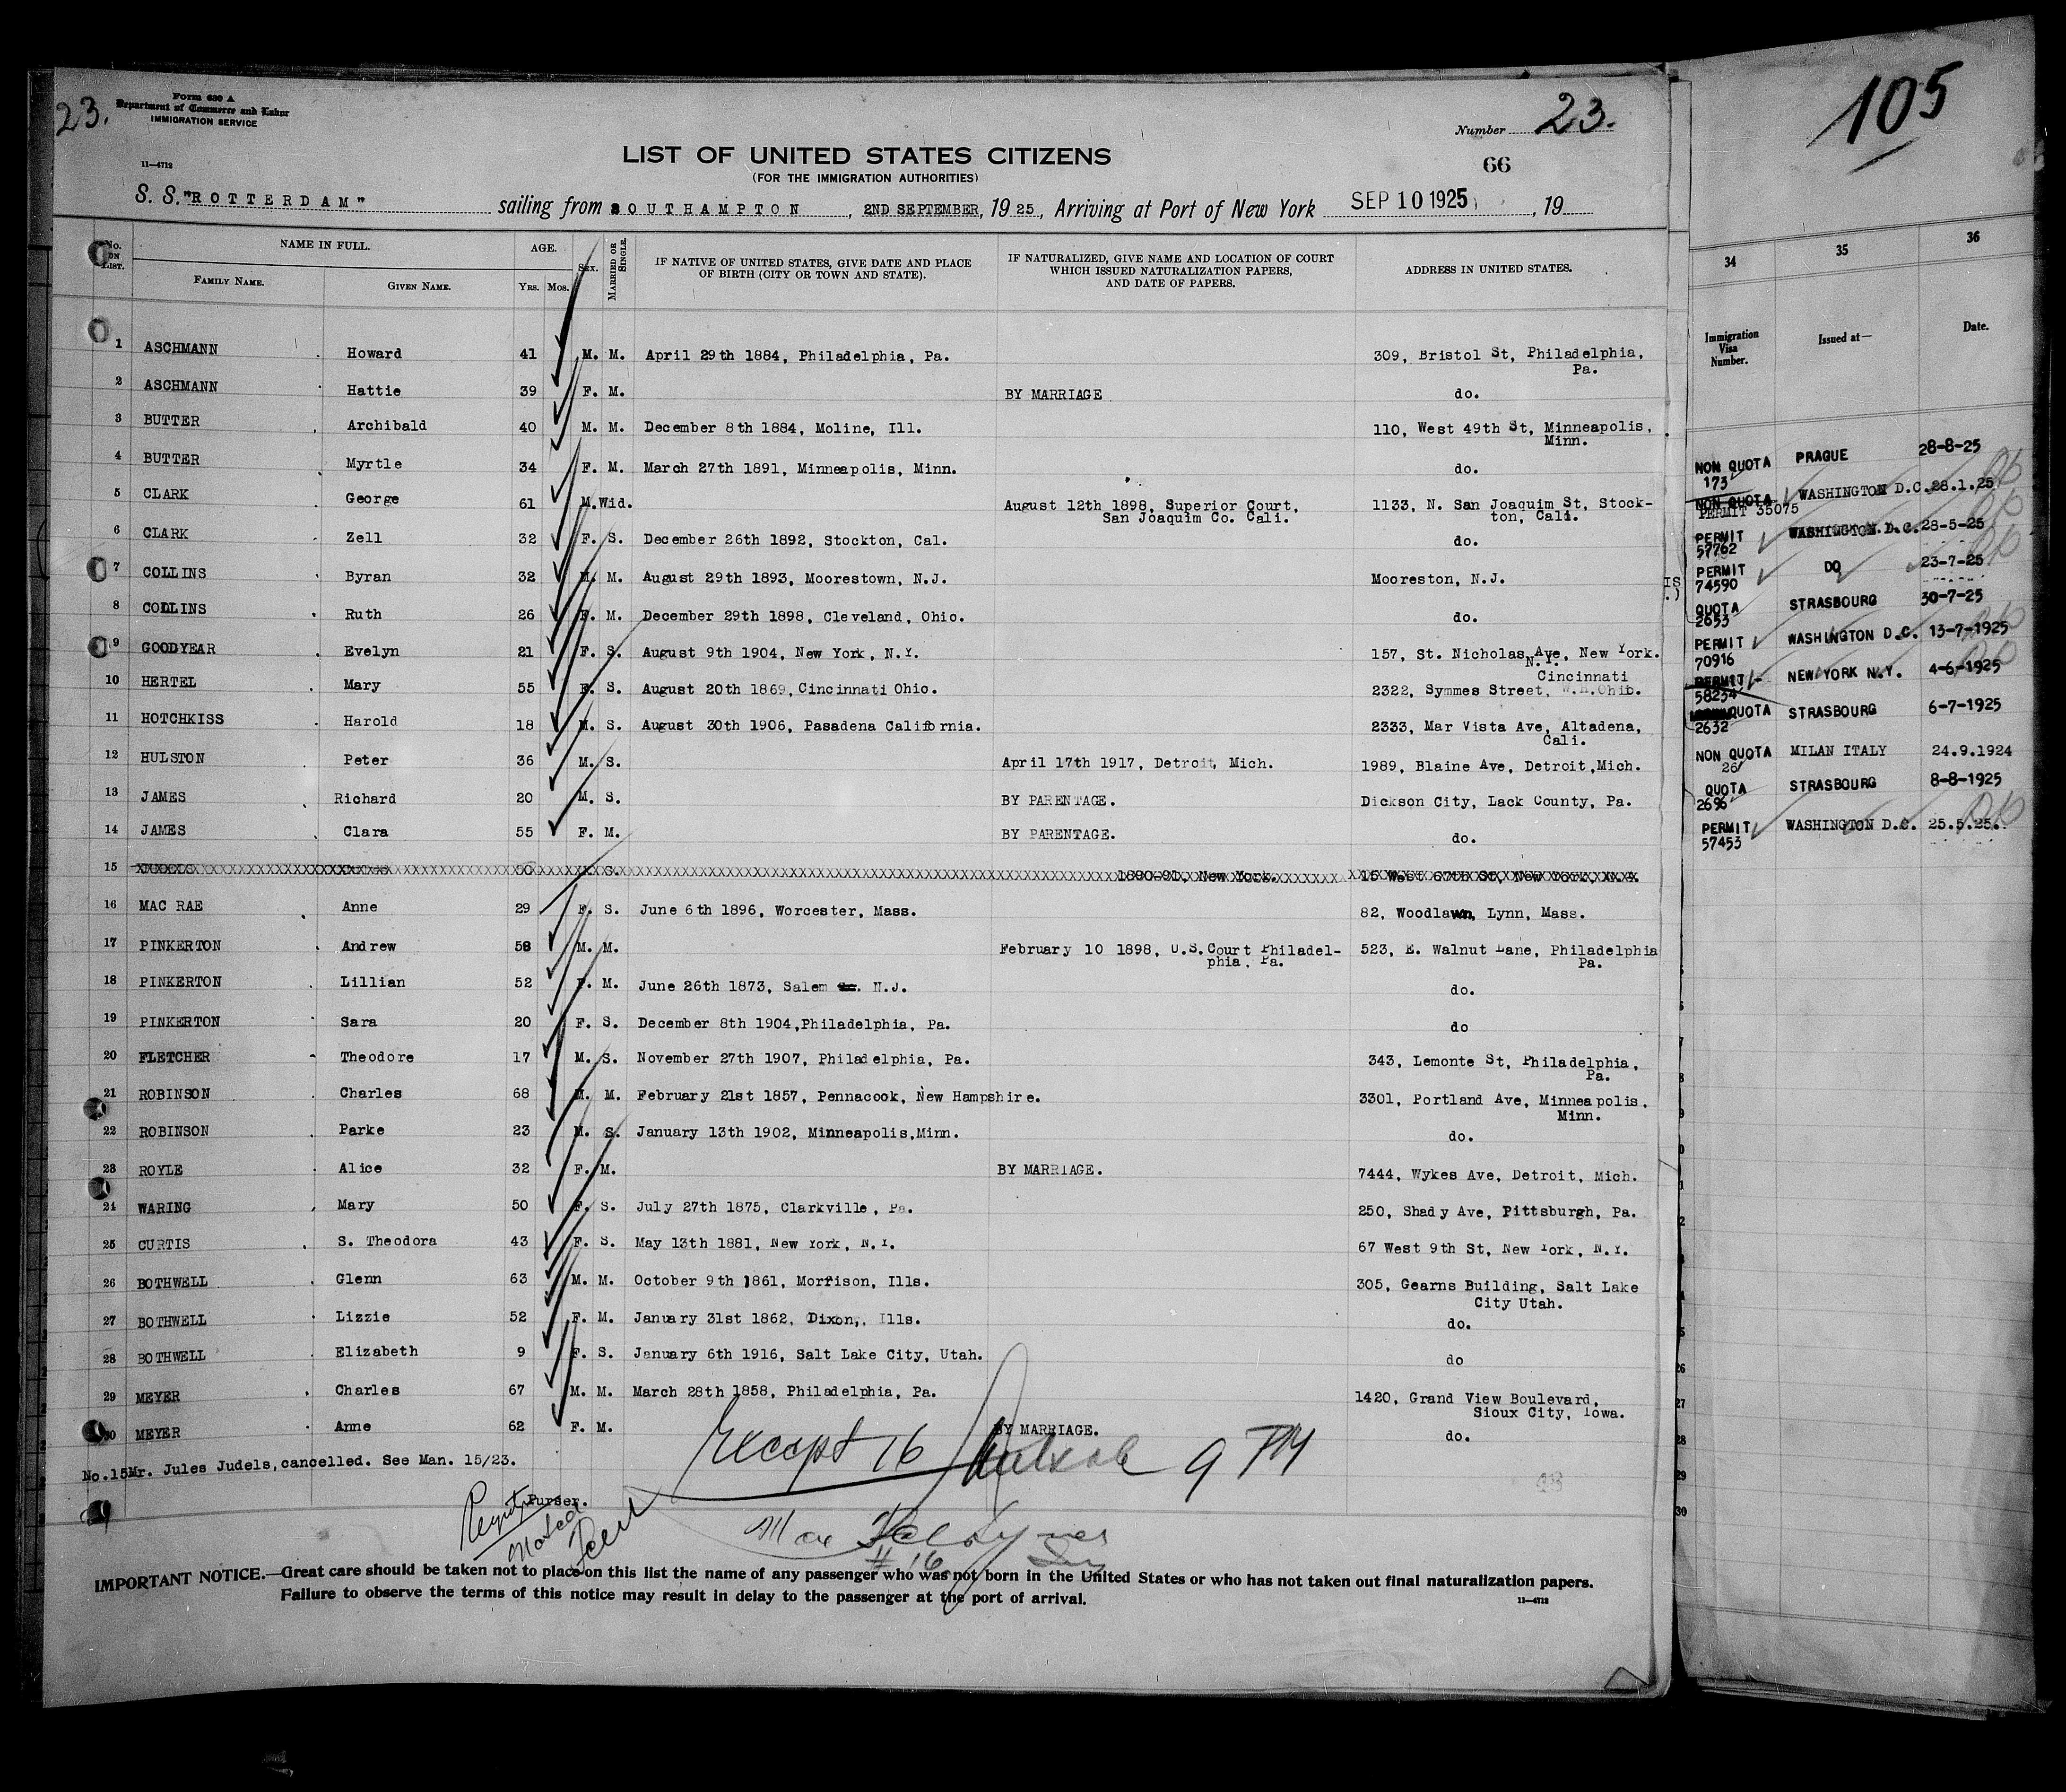 23.
Form 630 A
Department of Commerce and Labor
IMMIGRATION SERVICE
11—4712
Number 23.
LIST OF UNITED STATES CITIZENS
(FOR THE IMMIGRATION AUTHORITIES)
66
S. S. "ROTTERDAM" sailing from SOUTHAMPTON, 2ND SEPTEMBER, 1925, Arriving at Port of New York SEP 10 1925, 19
No. ON LIST. NAME IN FULL. AGE. SEX. MARRIED OR SINGLE. IF NATIVE OF UNITED STATES, GIVE DATE AND PLACE OF BIRTH (CITY OR TOWN AND STATE). IF NATURALIZED, GIVE NAME AND LOCATION OF COURT WHICH ISSUED NATURALIZATION PAPERS, AND DATE OF PAPERS. ADDRESS IN UNITED STATES.
FAMILY NAME. GIVEN NAME. YRS. MOS.
1 ASCHMANN Howard 41 M. M. April 29th 1884, Philadelphia, Pa. 309, Bristol St, Philadelphia,
Pa.
2 ASCHMANN Hattie 39 F. M. BY MARRIAGE do.
3 BUTTER Archibald 40 M. M. December 8th 1884, Moline, Ill. 110, West 49th St, Minneapolis,
Minn.
4 BUTTER Myrtle 34 F. M. March 27th 1891, Minneapolis, Minn. do.
5 CLARK George 61 M. Wid. August 12th 1898, Superior Court, 1133, N. San Joaquim St, Stock-
San Joaquim Co. Cali. ton, Cali.
6 CLARK Zell 32 F. S. December 26th 1892, Stockton, Cal. do.
7 COLLINS Byran 32 M. M. August 29th 1893, Moorestown, N.J. Mooreston, N.J.
8 COLLINS Ruth 26 F. M. December 29th 1898, Cleveland, Ohio. do.
9 GOODYEAR Evelyn 21 F. S. August 9th 1904, New York, N.Y. 157, St. Nicholas Ave, New York.
N.Y.
Cincinnati
10 HERTEL Mary 55 F. S. August 20th 1869, Cincinnati Ohio. 2322, Symmes Street, W.H.Ohio.
11 HOTCHKISS Harold 18 M. S. August 30th 1906, Pasadena California. 2333, Mar Vista Ave, Altadena,
Cali.
12 HULSTON Peter 36 M. S. April 17th 1917, Detroit, Mich. 1989, Blaine Ave, Detroit,Mich.
13 JAMES Richard 20 M. S. BY PARENTAGE. Dickson City, Lack County, Pa.
14 JAMES Clara 55 F. M. BY PARENTAGE. do.
15 50 S. 1890-91, New York. 15 West 67th St, New York, N.Y.
16 MAC RAE Anne 29 F. S. June 6th 1896, Worcester, Mass. 82, Woodlawn, Lynn, Mass.
17 PINKERTON Andrew 58 M. M. February 10 1898, U.S.Court Philadel- 523, E. Walnut Lane, Philadelphia
phia, Pa. Pa.
18 PINKERTON Lillian 52 F. M. June 26th 1873, Salem N.J. do.
19 PINKERTON Sara 20 F. S. December 8th 1904,Philadelphia, Pa. do
20 FLETCHER Theodore 17 M. S. November 27th 1907, Philadelphia, Pa. 343, Lemonte St, Philadelphia,
Pa.
21 ROBINSON Charles 68 M. M. February 21st 1857, Pennacook, New Hampshire. 3301, Portland Ave, Minneapolis,
Minn.
22 ROBINSON Parke 23 M. S. January 13th 1902, Minneapolis,Minn. do.
23 ROYLE Alice 32 F. M. BY MARRIAGE. 7444, Wykes Ave, Detroit, Mich.
24 WARING Mary 50 F. S. July 27th 1875, Clarkville, Pa. 250, Shady Ave, Pittsburgh, Pa.
25 CURTIS S. Theodora 43 F. S. May 13th 1881, New York, N.Y. 67 West 9th St, New York, N.Y.
26 BOTHWELL Glenn 63 M. M. October 9th 1861, Morrison, Ills. 305, Gearns Building, Salt Lake
City Utah.
27 BOTHWELL Lizzie 52 F. M. January 31st 1862, Dixon,. Ills. do.
28 BOTHWELL Elizabeth 9 F. S. January 6th 1916, Salt Lake City, Utah. do
29 MEYER Charles 67 M. M. March 28th 1858, Philadelphia, Pa. 1420, Grand View Boulevard,
Sioux City, Iowa.
30 MEYER Anne 62 F. M. BY MARRIAGE. do.
No.15Mr. Jules Judels,cancelled. See Man. 15/23.
Except 16 9 PM
Purser.
# 16
IMPORTANT NOTICE.—Great care should be taken not to place on this list the name of any passenger who was not born in the United States or who has not taken out final naturalization papers.
Failure to observe the terms of this notice may result in delay to the passenger at the port of arrival.
11—4712
105
34 35 36
Immigration Visa Number. Issued at— Date.
NON QUOTA PRAGUE 28-8-25
173
NON QUOTA WASHINGTON D.C. 28.1.25
PERMIT 35075
PERMIT WASHINGTON.D.C. 28-5-25
57762
PERMIT DO 23-7-25
74590
QUOTA STRASBOURG 30-7-25
2653
PERMIT WASHINGTON D.C. 13-7-1925
70916
PERMIT NEW YORK N.Y. 4-6-1925
58234
QUOTA STRASBOURG 6-7-1925
2632
NON QUOTA MILAN ITALY 24.9.1924
26
QUOTA STRASBOURG 8-8-1925
2696
PERMIT WASHINGTON D.C. 25.5.25.
57453